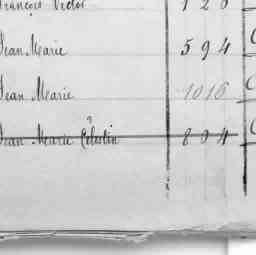 François Victor 126
Jean Marie 594
Jean Marie 1016
Jean Marie Célestin 804